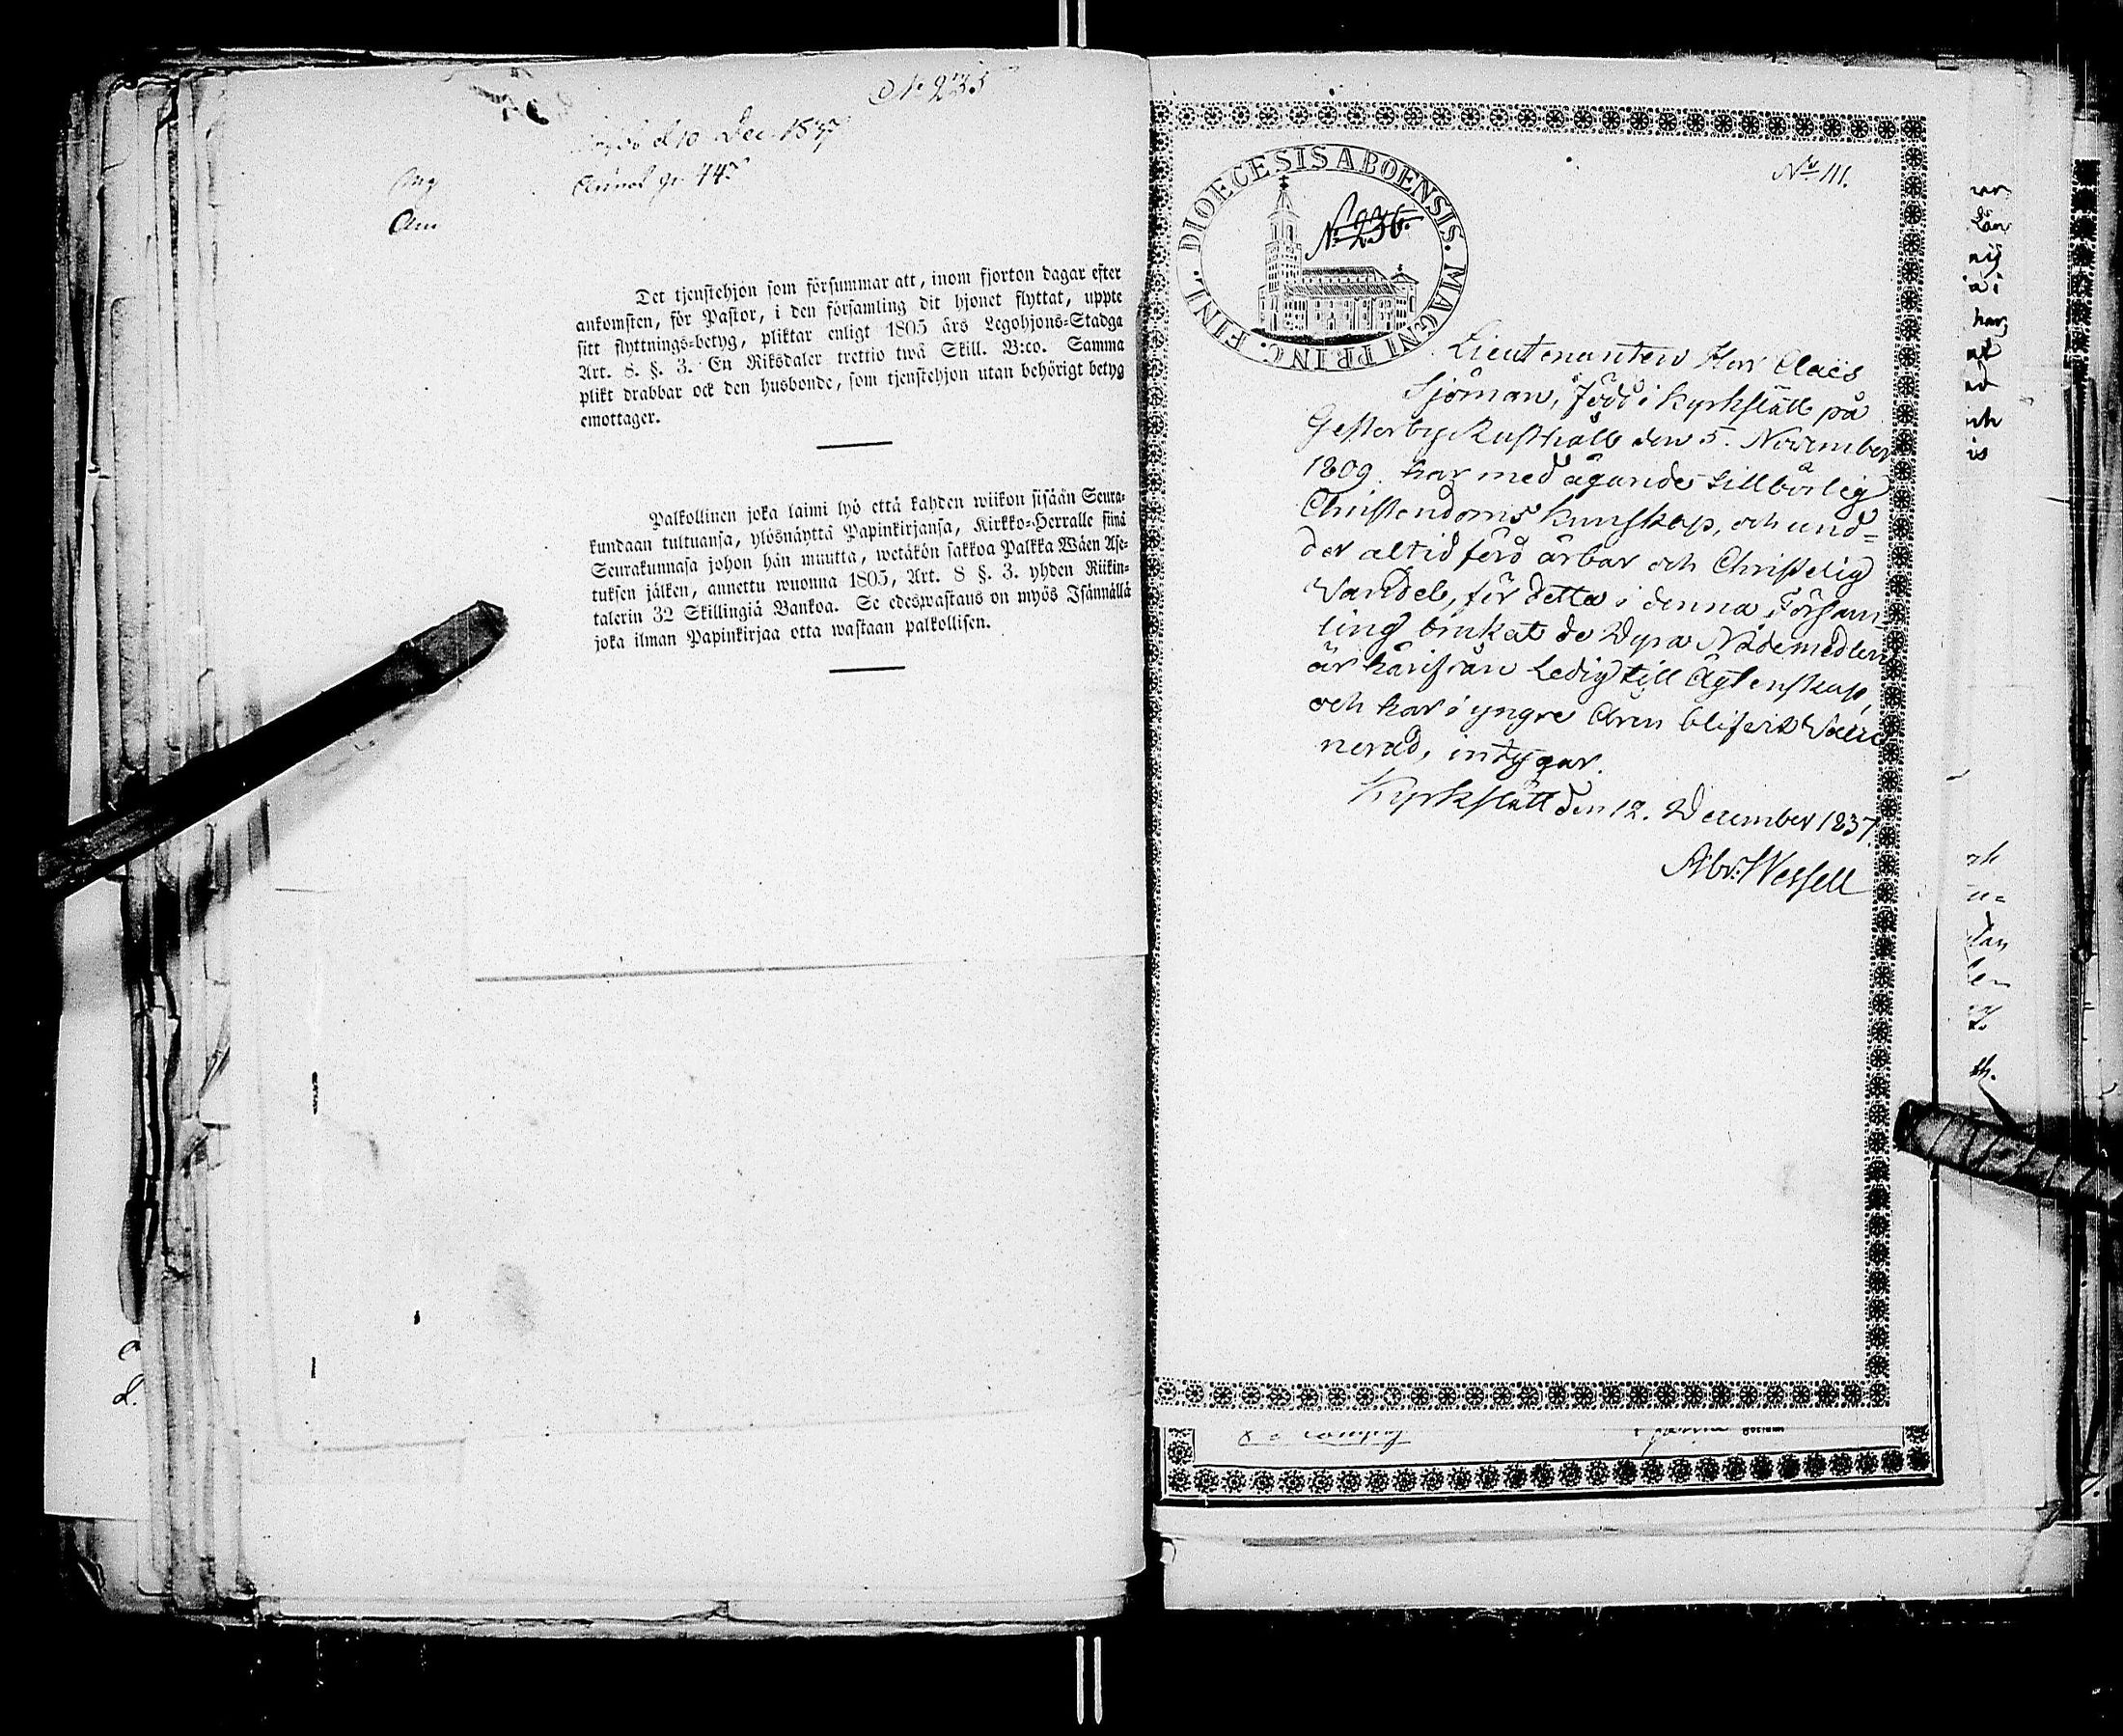 No 235
d 10 Dec. 1837
Det tjenstehjon som försummar att, inom fjorton dagar efter
ankomsten, för Pastor, i den församling dit hjonet flyttat, uppte
sitt flyttnings-betyg, pliktar enligt 1805 års Legohjons-Stadga
Art. 8. §. 3. En Riksdaler trettio twå Skill. B:co. Samma
plikt drabbar ock den husbonde, som tjenstehjon utan behörigt betyg
emottager.
Palkollinen joka laimi lyö että kahden wiikon sisään Seura-
kundaan tultuansa, ylösnäyttä Papinkirjansa, Kirkko-Herralle siinä
Seurakunnasa johon hän muutta, wetäkön sakkoa Palkka Wäen Ase-
tuksen jälken, annettu wuonna 1805, Art. 8 §. 3. yhden Riikin-
talerin 32 Skillingiä Bankoa. Se edeswastaus on myös Isännällä
joka ilman Papinkirjaa otta wastaan palkollisen.
No 111.
DIOECESIS ABOENSIS. MAGNI PRINC. FINL.
No 236.
Lieutenanten Herr Claës
Sjöman, född i Kyrkslätt på
Gesterby Rusthåll den 5. November
1809. har med ägande tillbörlig
Christendoms kunskap, och und-
der altid förd ärbar och Christelig
Vandel, för detta i denna Försam-
ling brukat de Dyra Nådemedlen
är härifrån Ledig till Ägtenskap,
och har i yngre Åren blifvit Vacci-
nerad, intygar.
Kyrkslätt den 12. December 1837.
Abr: Wessell